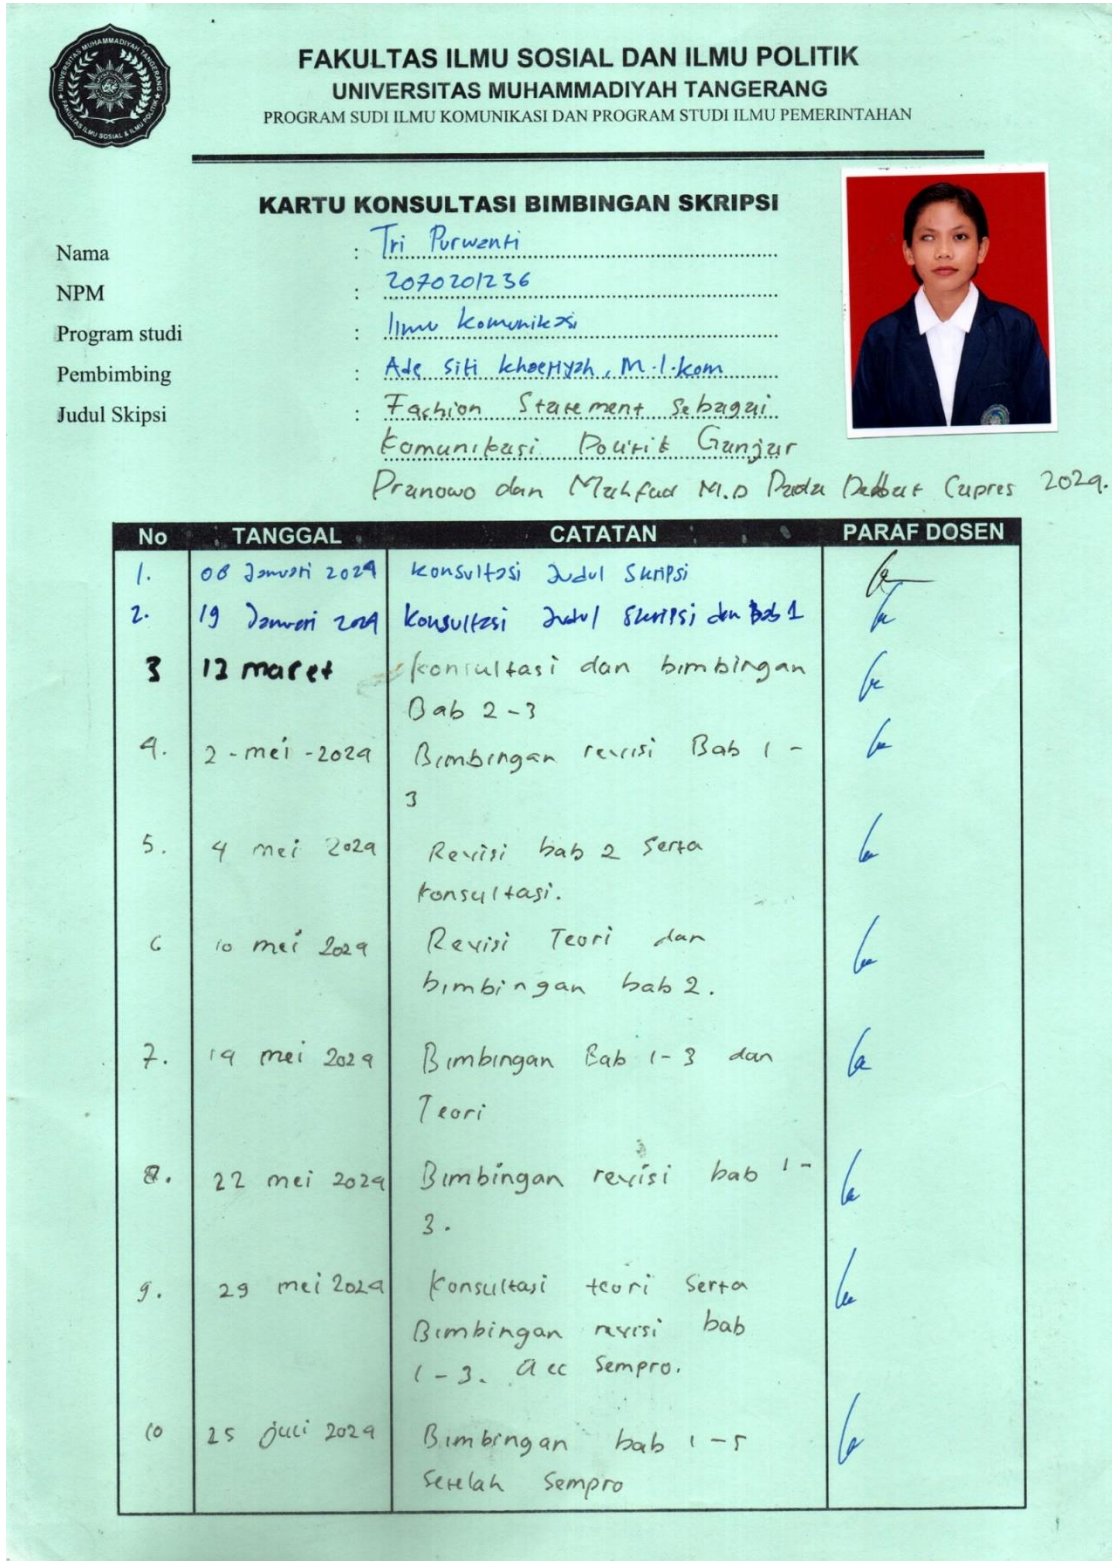 UNIVERSITAS MUHAMMADIYAH TANGERANG
FAKULTAS ILMU SOSIAL & ILMU POLITIK
FAKULTAS ILMU SOSIAL DAN ILMU POLITIK
UNIVERSITAS MUHAMMADIYAH TANGERANG
PROGRAM SUDI ILMU KOMUNIKASI DAN PROGRAM STUDI ILMU PEMERINTAHAN
KARTU KONSULTASI BIMBINGAN SKRIPSI
Nama : Tri Purwanti
NPM : 2070201236
Program studi : Ilmu Komunikasi
Pembimbing : Ade Siti Khoeriyah, M.I.Kom
Judul Skipsi : Fashion Statement Sebagai
Komunikasi Politik Ganjar
Pranowo dan Mahfud M.D Pada Debat Capres 2024.
No TANGGAL CATATAN PARAF DOSEN
1. 08 Januari 2024 Konsultasi Judul Skripsi
2. 19 Januari 2024 Konsultasi Judul Skripsi dan Bab 1
3 12 maret Konsultasi dan bimbingan
Bab 2-3
4. 2-mei-2024 Bimbingan revisi Bab 1-
3
5. 4 mei 2024 Revisi bab 2 Serta
Konsultasi.
6 10 mei 2024 Revisi Teori dan
bimbingan bab 2.
7. 19 mei 2024 Bimbingan Bab 1-3 dan
Teori
8. 22 mei 2024 Bimbingan revisi bab 1-
3.
9. 29 mei 2024 Konsultasi teori Serta
Bimbingan revisi bab
1-3. acc Sempro.
10 25 juli 2024 Bimbingan bab 1-5
Setelah Sempro